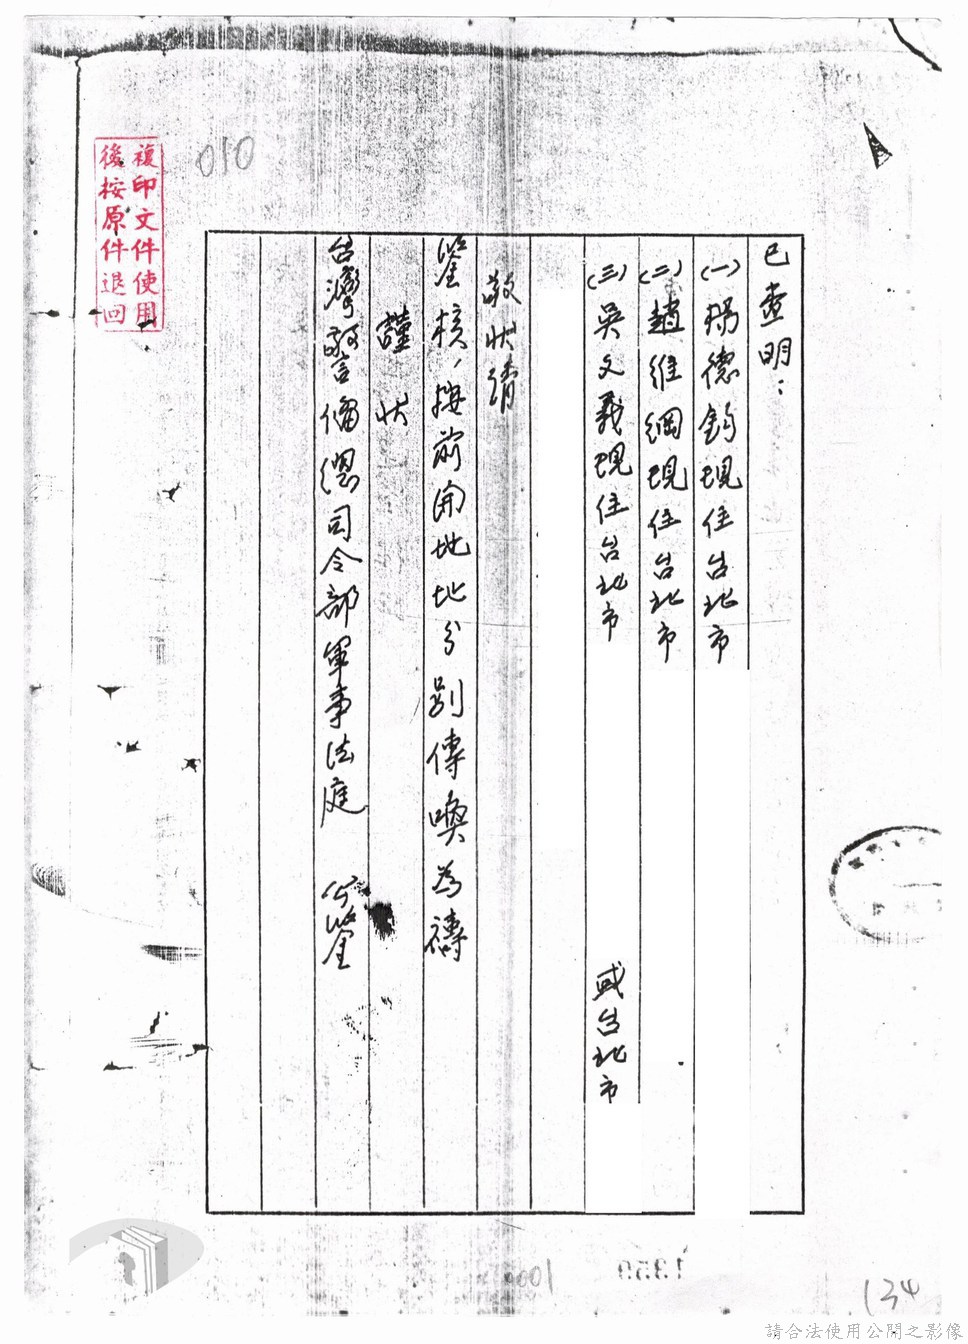 已查明：
(一)楊德鈞現住台北市
(二)趙維綱現住台北市
(三)吳文義現住台北市 或台北市
敬狀請
鑒核，按前開地址分別傳喚為禱
謹狀
台灣警備總司令部軍事法庭 公鑒
複印文件使用
後按原件退回
010
0001
1359
134
請合法使用公開之影像